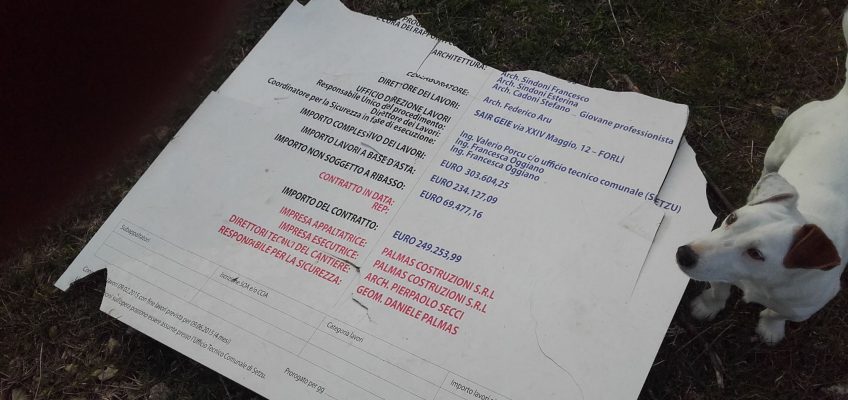 PROG
E CURA DEI RAPPORT
ARCHITETTURA:
Arch. Sindoni Francesco
Arch. Sindoni Esterina
Arch. Cadoni Stefano - Giovane professionista
DIRETTORE DEI LAVORI: Arch. Federico Aru
UFFICIO DIREZIONE LAVORI SAIR GEIE via XXIV Maggio, 12 – FORLÌ
Responsabile Unico del procedimento: Ing. Valerio Porcu c/o ufficio tecnico comunale (SETZU)
Direttore dei Lavori: Ing. Francesca Oggiano
Coordinatore per la Sicurezza in fase di esecuzione: Ing. Francesca Oggiano
IMPORTO COMPLESSIVO DEI LAVORI: EURO 303.604,25
IMPORTO LAVORI A BASE D'ASTA: EURO 234.127,09
IMPORTO NON SOGGETTO A RIBASSO: EURO 69.477,16
CONTRATTO IN DATA:
REP:
IMPORTO DEL CONTRATTO: EURO 249.253,99
IMPRESA APPALTATRICE: PALMAS COSTRUZIONI S.R.L
IMPRESA ESECUTRICE: PALMAS COSTRUZIONI S.R.L
DIRETTORI TECNICI DEL CANTIERE: ARCH. PIERPAOLO SECCI
RESPONSABILE PER LA SICUREZZA: GEOM. DANIELE PALMAS
Subappaltatori
Iscrizione SOA e/o CCIA
Categoria lavori
Importo lavori
lavori 09.02.2015 con fine lavori prevista per 09.06.2015 (4 mesi)
sull'opera potranno essere assunte presso l'Ufficio Tecnico Comunale di Setzu.
Prorogato per gg